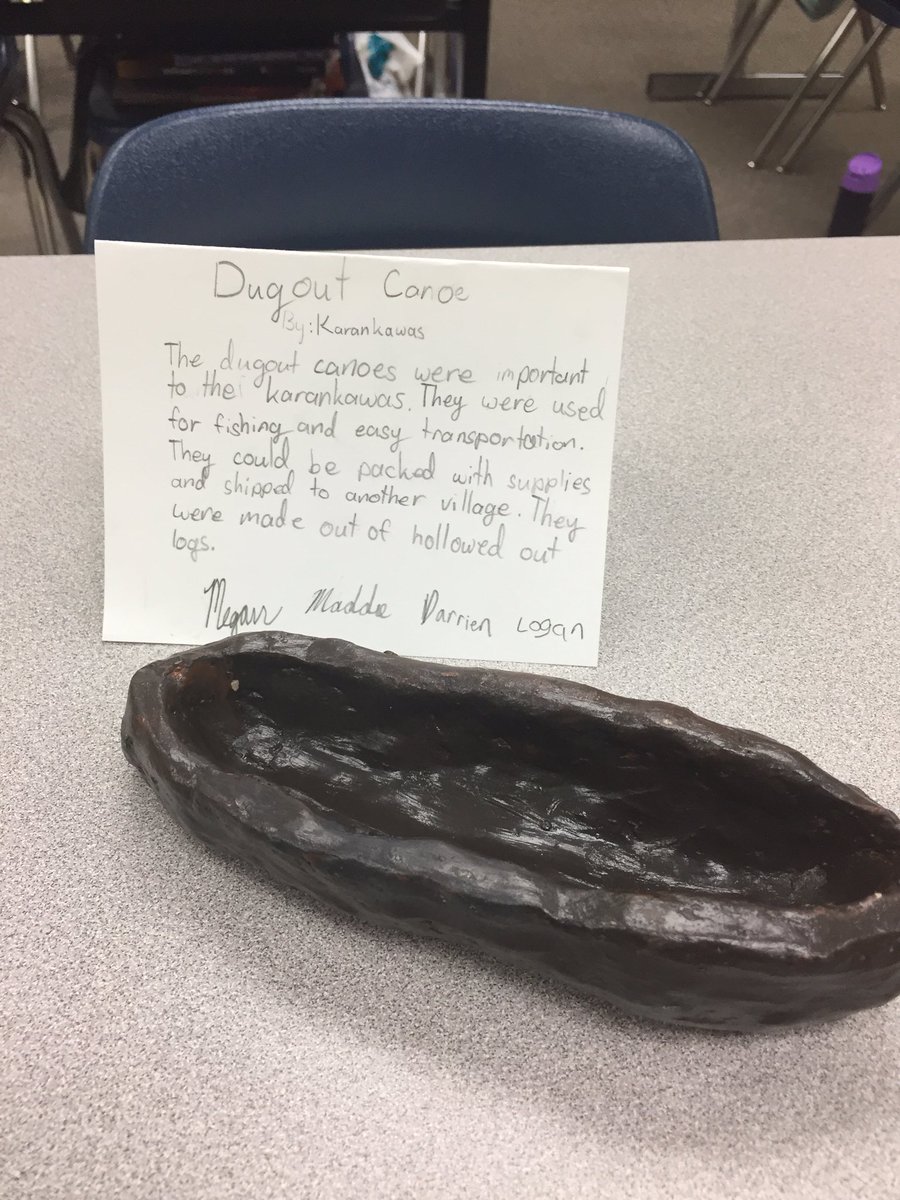 Dugout Canoe
By: Karankawas
The dugout canoes were important
to the karankawas. They were used
for fishing and easy transportation.
They could be packed with supplies
and shipped to another village. They
were made out of hollowed out
logs.
Megan Maddie Darrien Logan